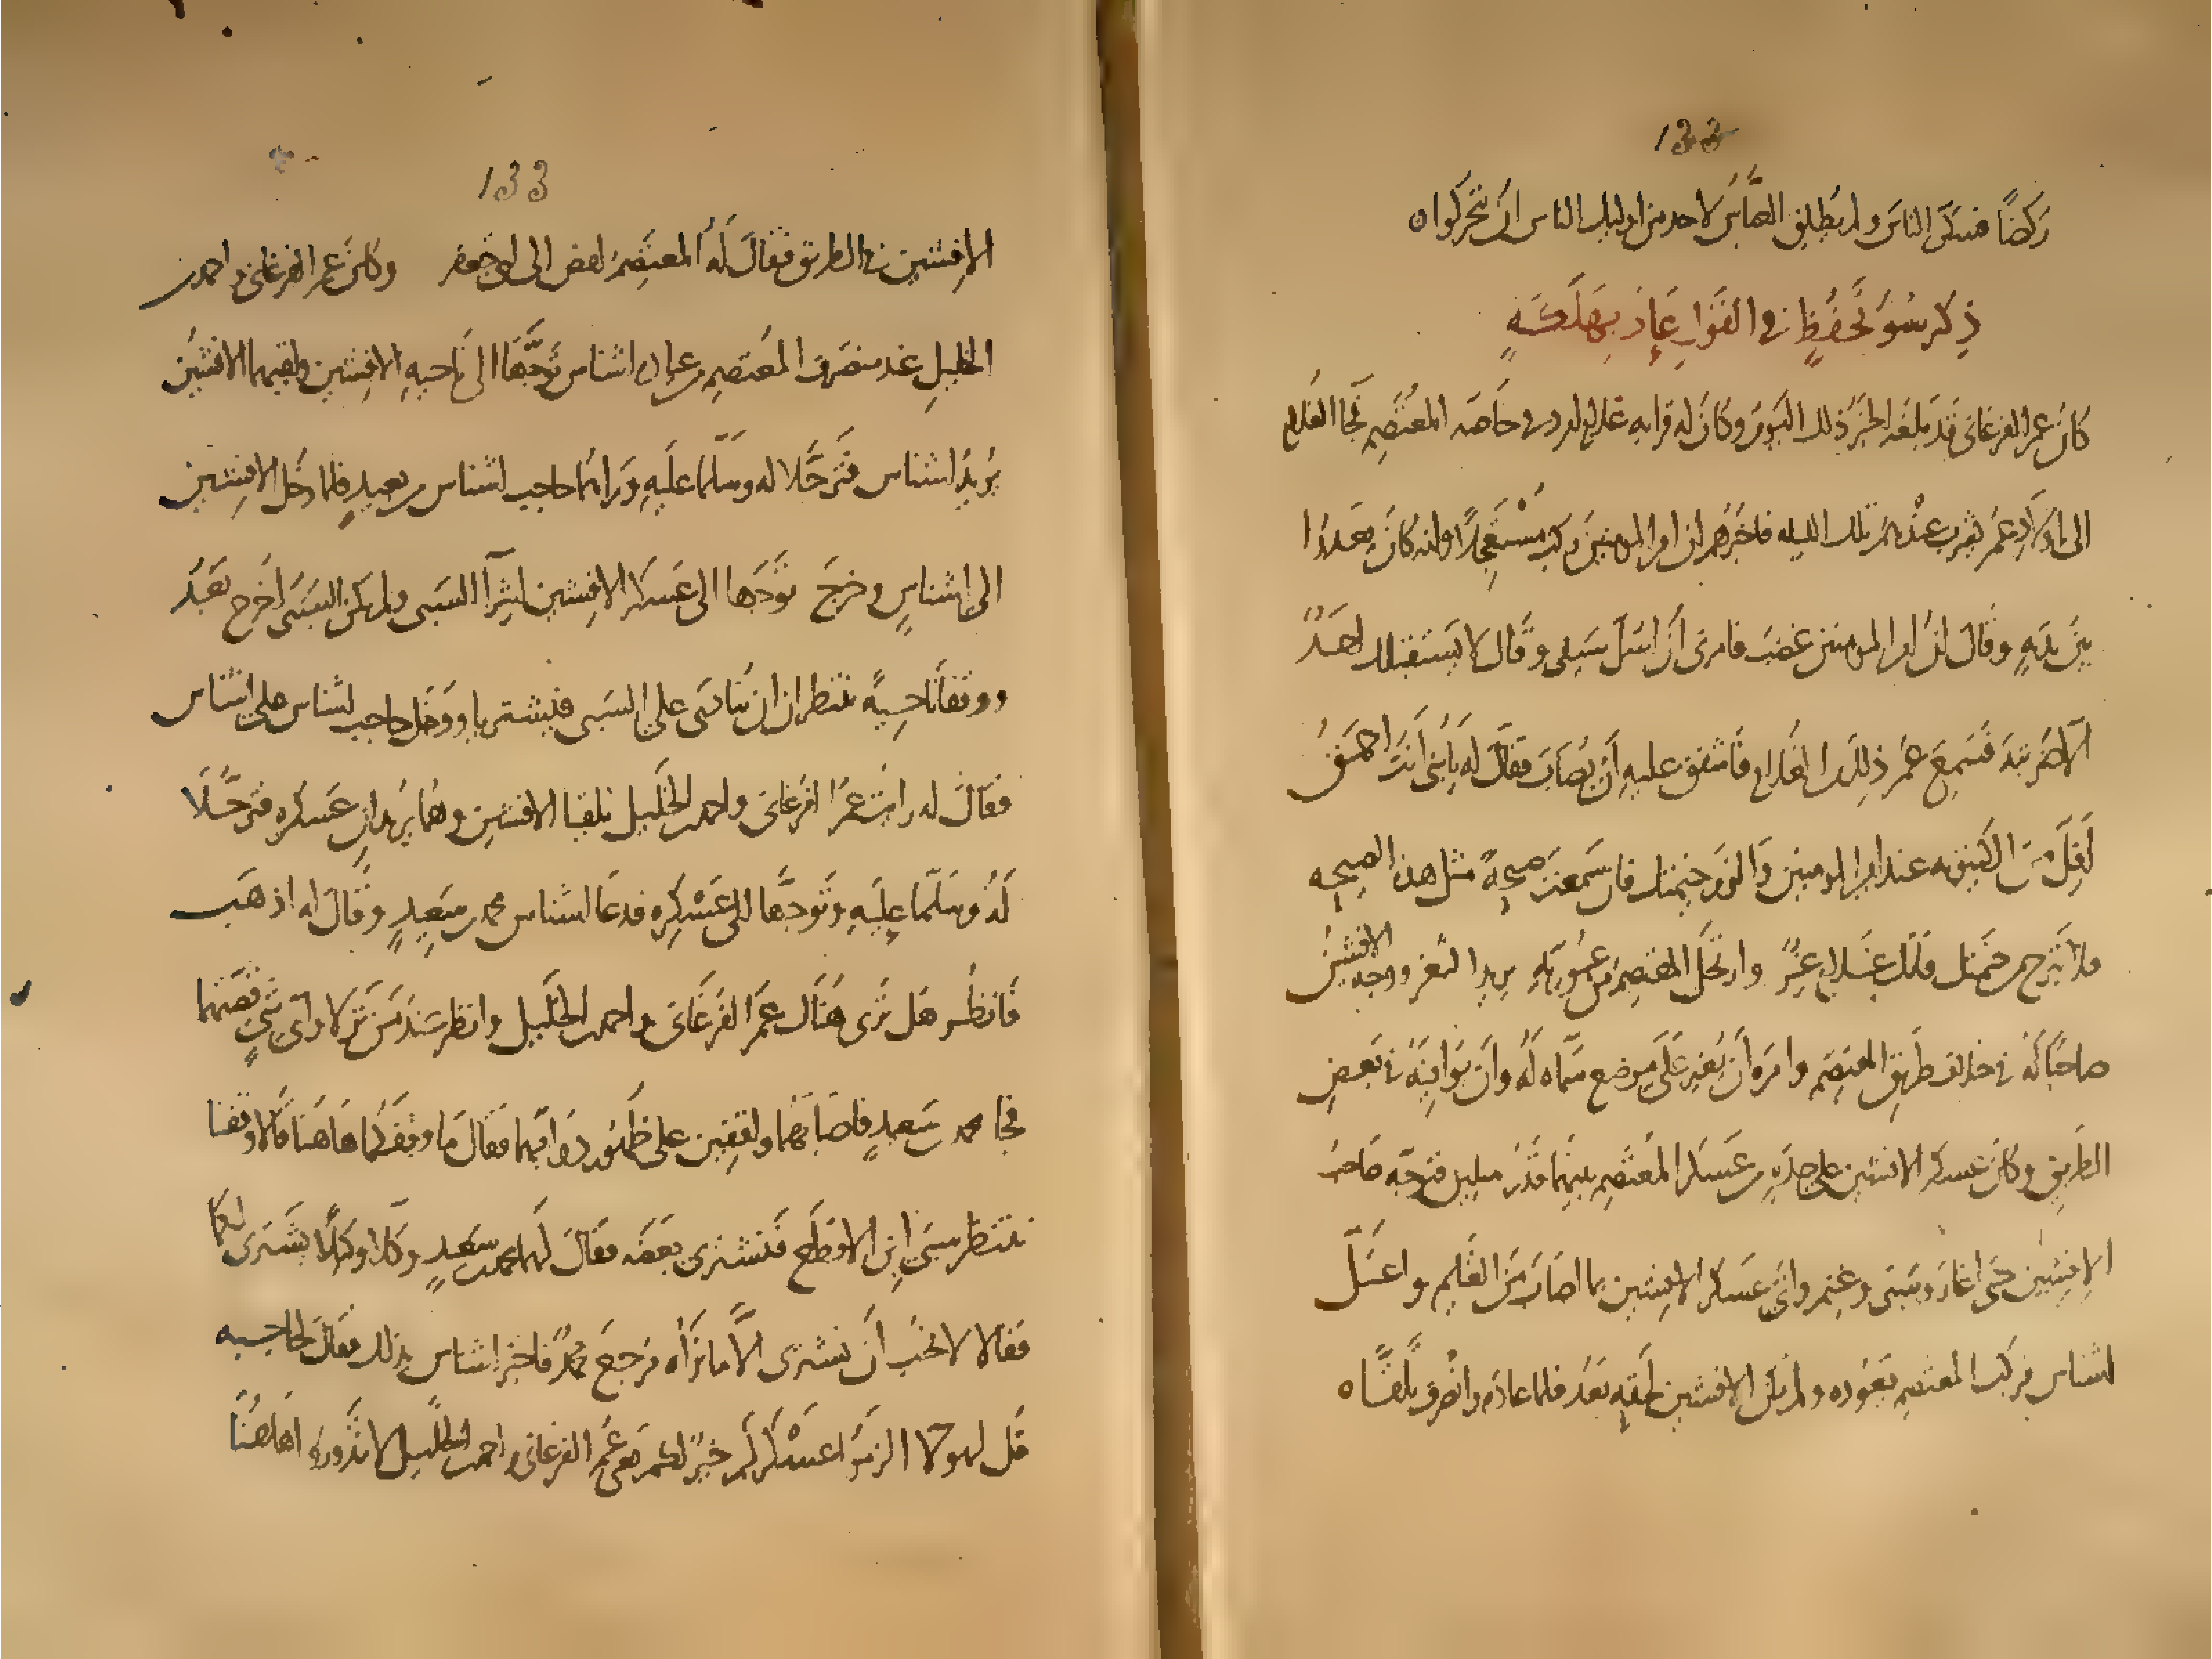 133
ركضًا فسكن الناس ولم يطلق العباس لاحد من اوليك الناس ان يتحركوا
ذكر سوء تحفظ في القول عاد بهلكة
كان عمر الفرغاني قد بلغه الخبر ذلك اليوم وكان له قرابه غلام امرد في خاصه المعتصم فجا الغلام
الى اولاد عمر يشرب عندهم تلك الليله فاخبرهم ان امير المومنين ركب مستعجلًا وانه كان يعدوا
بين يديه وقال ان امير المومنين غضب فامرني ان اسل سيفي وقال لا يستقبلك احد
الا ضربته فسمع عمر ذلك من الغلام فاشفق عليه ان يصاب فقال له يا بني انت احمق
اقل من الكينونه عند امير المومنين والزم خيمتك فان سمعت صيحة مثل هذه الصيحه
فلا تبرح من خيمتك فانك غلام غر وارتحل المعتصم من عموريه يريد الثغر ووجه الافشين
صاحبًا له في خلاف طريق المعتصم وامره ان يغير على موضع سماه له وان يوافيه في بعض
الطريق وكان عسكر الافشين على حده من عسكر المعتصم بينهما قدر ميلين فتوجه صاحب
الافشين حتى اغار وسبى وغنم واتى عسكر الافشين بما اصاب من الغنايم واعتل
اشناس فركب المعتصم يعوده ولم يكن الافشين لحقه بعد فلما عاده وانصرف تلقاه
133
الافشين في الطريق فقال له المعتصم امض الى ابي جعفر وكان عمر الفرغاني واحمد بن
الخليل عند منصرف المعتصم من عيادة اشناس توجها الى ناحيه الافشين ولقيهما الافشين
يريد اشناس فترجلا له وسلما عليه وراهما حاجب اشناس من بعيد فلما دخل الافشين
الى اشناس وخرج توجها الى عسكر الافشين لشرآ السبى ولم يكن السبى اخرج بعد
ووقفا ناحية ينتظران ان ينادى على السبى فيشتريا ودخل حاجب اشناس على اشناس
فقال له رايت عمر الفرغاني واحمد بن الخليل تلقيا الافشين وهما يريدان عسكره فترجلا
له وسلما عليه وتوجها الى عسكره فدعا اشناس محمد بن سعيد وقال له اذهب
فانظر هل ترى هناك عمر الفرغاني واحمد بن الخليل وانظر عند من نزلا واي شي قصتهما
فجا محمد بن سعيد فاصابهما واقفين على ظهور دوابهما فقال ما وقفكما هاهنا قالا وقفنا
ننتظر سبي ابن الاقطع فنشتري بعضه فقال لهما محمد بن سعيد وكلا وكيلًا يشتري لكما
فقالا لا نحب ان نشتري الا ما نراه فرجع محمد فاخبر اشناس بذلك فقال لحاجبه
قل لهولاء الزموا عسكركم خير لكم يعني عمر الفرغاني واحمد بن الخليل لا تذوروا هاهنا